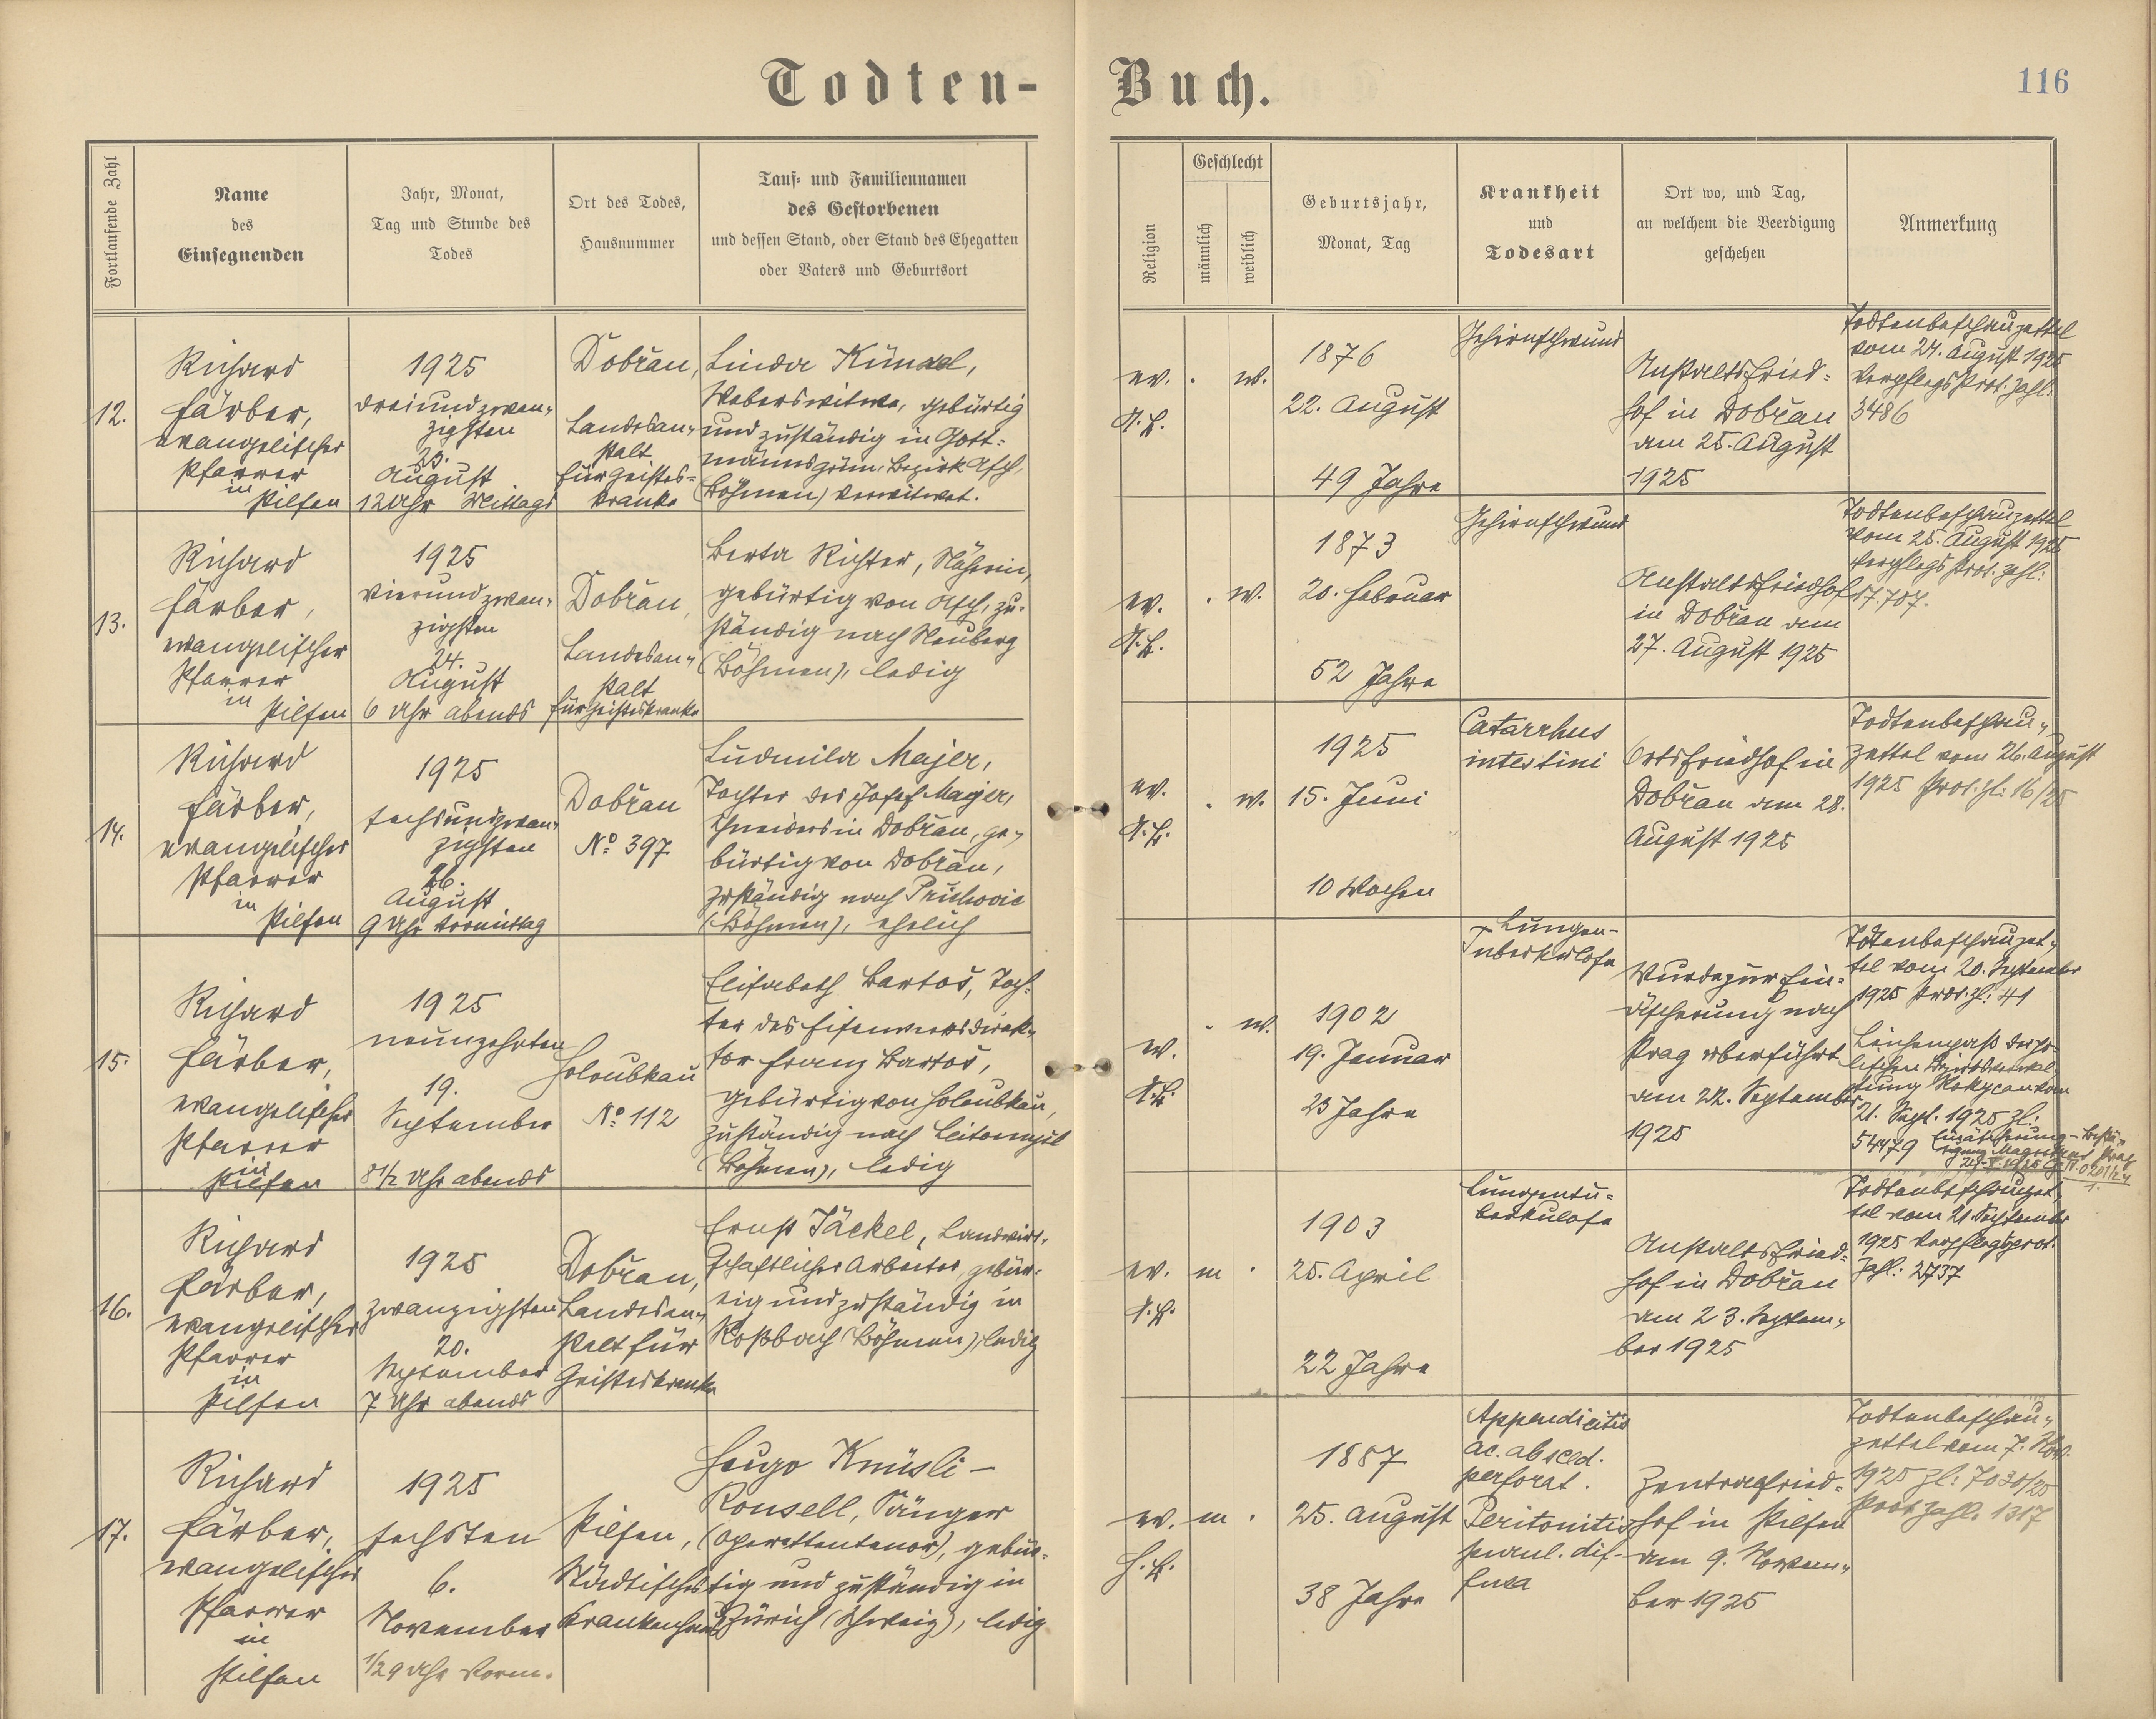 Todten-
Buch.
116
Fortlaufende Zahl
Name
des
Einsegnenden
Jahr, Monat,
Tag und Stunde des
Todes
Ort des Todes,
Hausnummer
Tauf- und Familiennamen
des Gestorbenen
und dessen Stand, oder Stand des Ehegatten
oder Vaters und Geburtsort
Religion
Geschlecht
männlich
weiblich
Geburtsjahr,
Monat, Tag
Krankheit
und
Todesart
Ort wo, und Tag,
an welchem die Beerdigung
geschehen
Anmerkung
12.
Richard
Färber,
evangelischer
Pfarrer
in
Pilsen
1925
dreiundzwan-
zigsten
23.
August
12 Uhr Mittags
Dobřan,
Landesan-
stalt
für Geistes-
kranke
Linda Künzel,
Weberswitwe, gebürtig
und zuständig in Gott-
mannsgrün, Bezirk Asch,
(Böhmen) verwitwet.
ev.
A.B.
w.
1876
22. August
49 Jahre
Gehirnschwund
Anstaltsfried-
hof in Dobřan
am 25. August
1925
Todtenbeschauzettel
vom 24. August 1925
Verpflegsprot. Zahl:
3486
13.
Richard
Färber,
evangelischer
Pfarrer
in
Pilsen
1925
vierundzwan-
zigsten
24.
August
6 Uhr abends
Dobřan,
Landesan-
stalt
für Geisteskranke
Berta Richter, Näherin,
gebürtig von Asch, zu-
ständig nach Neuberg
(Böhmen), ledig
ev.
A.B.
w.
1873
20. Februar
52 Jahre
Gehirnschwund
Anstaltsfriedhof
in Dobřan am
27. August 1925
Todtenbeschauzettel
vom 25. August 1925
Verpflegs Prot. Zahl:
17.707.
14.
Richard
Färber,
evangelischer
Pfarrer
in
Pilsen
1925
sechsundzwan-
zigsten
26.
August
9 Uhr Vormittag
Dobřan
No 397
Ludmila Majer,
Tochter des Josef Majer,
Schneiders in Dobřan, ge-
bürtig von Dobřan,
zuständig nach
(Böhmen), ehelich
ev.
A.B.
w.
1925
15. Juni
10 Wochen
Catarrhus
intestini
Ortsfriedhof in
Dobřan am 28.
August 1925
Todtenbeschau-
zettel vom 26. August
1925 Prot. zl: 16/25
15.
Richard
Färber,
evangelischer
Pfarrer
in
Pilsen
1925
neunzehnten
19.
September
8 1/2 Uhr abends
Holoubkau
No 112
Elisabeth Bartoš, Toch-
ter des Eisenwerksdirek-
tor Franz Bartoš,
gebürtig von Holoubkau,
zuständig nach Leitomyšl
(Böhmen), ledig
ev.
A.B.
w.
1902
19. Januar
23 Jahre
Lungen-
Tuberkulose
Wurde zur Ein-
äscherung nach
Prag überführt
am 22. September
1925
Todtenbeschauzet-
tel vom 20. September
1925 Prot. zl: 41
Leichenpaß der po-
litischen Bezirksverwal-
tung Rokycan vom
21. Sept. 1925 Zl:
54479
16.
Richard
Färber,
evangelischer
Pfarrer
in
Pilsen
1925
zwanzigsten
20.
September
7 Uhr abends
Dobřan,
Landesan-
stalt für
Geisteskranke
Ernst Jäckel, Landwirt-
schaftlicher Arbeiter, gebür-
tig und zuständig in
Roßbach (Böhmen), ledig
ev.
A.B.
m
1903
25. April
22 Jahre
Lungentu-
berkulose
Anstaltsfried-
hof in Dobřan
am 23. Septem-
ber 1925
Todtenbeschauzet-
tel vom 21. September
1925 Verpflegsprot.
Zahl: 2737
17.
Richard
Färber,
evangelischer
Pfarrer
in
Pilsen
1925
sechsten
6.
November
1/29 Uhr Vorm.
Pilsen,
Städtisches
Krankenhaus
Hugo Knüsli-
Ronsell, Sänger
(Operettentenor), gebür-
tig und zuständig in
Zürich (Schweiz), ledig
ev.
H.B.
m
1887
25. August
38 Jahre
Appendicitis
ac. absced.
perforat.
Peritonitis
purul. dif-
fusa
Zentralfried-
hof in Pilsen
am 9. Novem-
ber 1925
Todtenbeschau-
zettel vom 7. Nov.
1925 Zl: 7030/25
Prot. Zahl. 1317